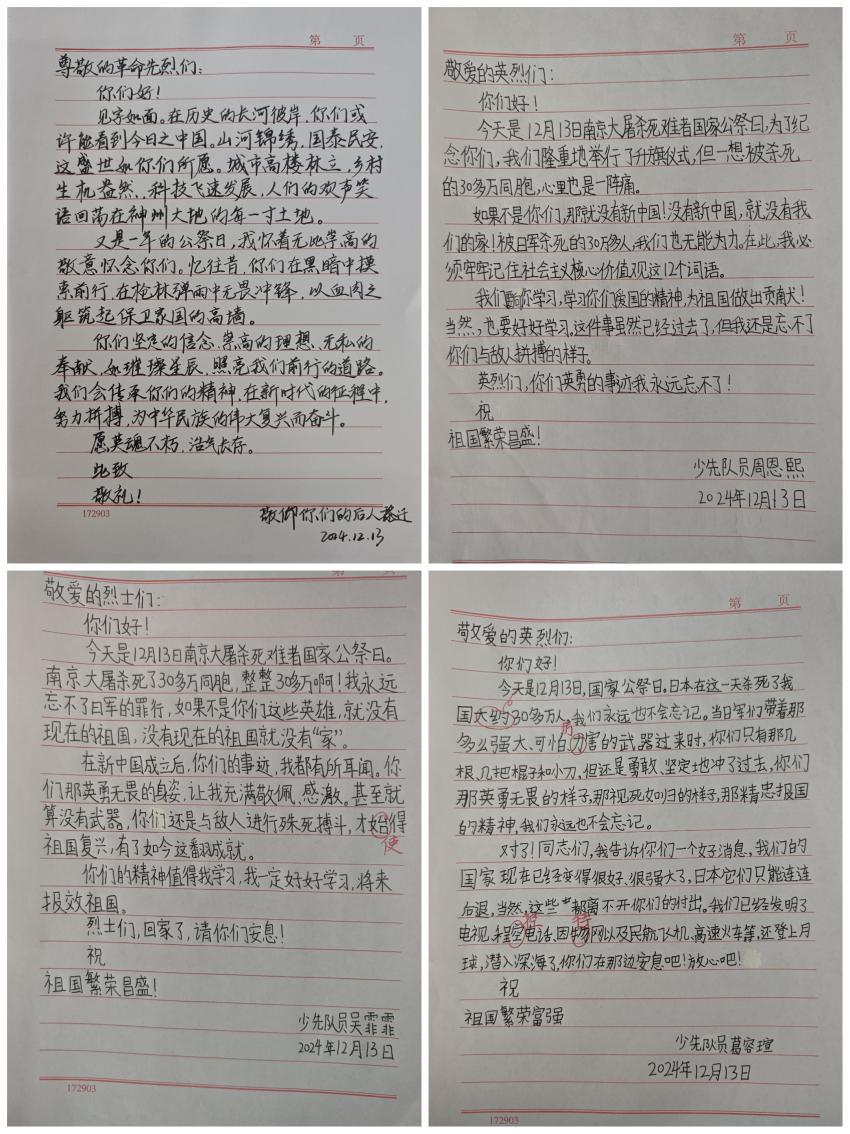 第 页
尊敬的革命先烈们：
你们好！
见字如面。在历史的长河彼岸，你们或
许能看到今日之中国。山河锦绣，国泰民安，
这盛世如你们所愿。城市高楼林立，乡村
生机盎然，科技飞速发展，人们的欢声笑
语回荡在神州大地的每一寸土地。
又是一年的公祭日，我怀着无比崇高的
敬意怀念你们。忆往昔，你们在黑暗中摸
索前行，在枪林弹雨中无畏冲锋，以血肉之
躯筑起保卫家国的高墙。
你们坚定的信念、崇高的理想、无私的
奉献，如璀璨星辰，照亮我们前行的道路。
我们会传承你们的精神，在新时代的征程中，
努力拼搏，为中华民族的伟大复兴而奋斗。
愿英魂不朽，浩气长存。
此致
敬礼！
172903
敬仰你们的后人
2024.12.13
第 页
敬爱的英烈们：
你们好！
今天是12月13日南京大屠杀死难者国家公祭日，为了纪
念你们，我们隆重地举行了升旗仪式，但一想被杀死
的30多万同胞，心里也是一阵痛。
如果不是你们，那就没有新中国！没有新中国，就没有我
们的家！被日军杀死的30万多人，我们也无能为力。在此，我必
须牢牢记住社会主义核心价值观这12个词语。
我们要向你学习，学习你们爱国的精神，为祖国做出贡献！
当然，也要好好学习，这件事虽然已经过去了，但我还是忘不了
你们与敌人拼搏的样子。
英烈们，你们英勇的事迹我永远忘不了！
祝
祖国繁荣昌盛！
少先队员周恩熙
2024年12月13日
第 页
敬爱的烈士们：
你们好！
今天是12月13日南京大屠杀死难者国家公祭日。
南京大屠杀死了30多万同胞，整整30多万啊！我永远
忘不了日军的罪行，如果不是你们这些英雄，就没有
现在的祖国，没有现在的祖国就没有“家”。
在新中国成立后，你们的事迹，我都有所耳闻。你
们那英勇无畏的身姿，让我充满敬佩、感激。甚至就
算没有武器，你们还是与敌人进行殊死搏斗，才始得
使
祖国复兴，有了如今这翻成就。
你们的精神值得我学习，我一定好好学习，将来
报效祖国。
烈士们，回家了，请你们安息！
祝
祖国繁荣昌盛！
少先队员吴霏霏
2024年12月13日
172903
第 页
敬爱的英烈们：
你们好！
今天是12月13日，国家公祭日。日本在这一天杀死了我
国大约30多万人。我们永远也不会忘记。当日军们带着那
厉
多么强大、可怕、刀害的武器过来时，你们只有那几
根、几把棍子和小刀，但还是勇敢、坚定地冲了过去，你们
那英勇无畏的样子，那视死如归的样子，那精忠报国
的精神，我们永远也不会忘记。
对了！同志们，我告诉你们一个好消息，我们的
国家现在已经变得很好、很强大了，日本它们只能连连
后退，当然，这些都离不开你们的付出。我们已经发明了
电视、程空电话、因物网以及民航飞机、高速火车等，还登上月
球，潜入深海了，你们在那边安息吧！放心吧！
祝
祖国繁荣富强
少先队员葛容瑄
2024年12月13日
172903